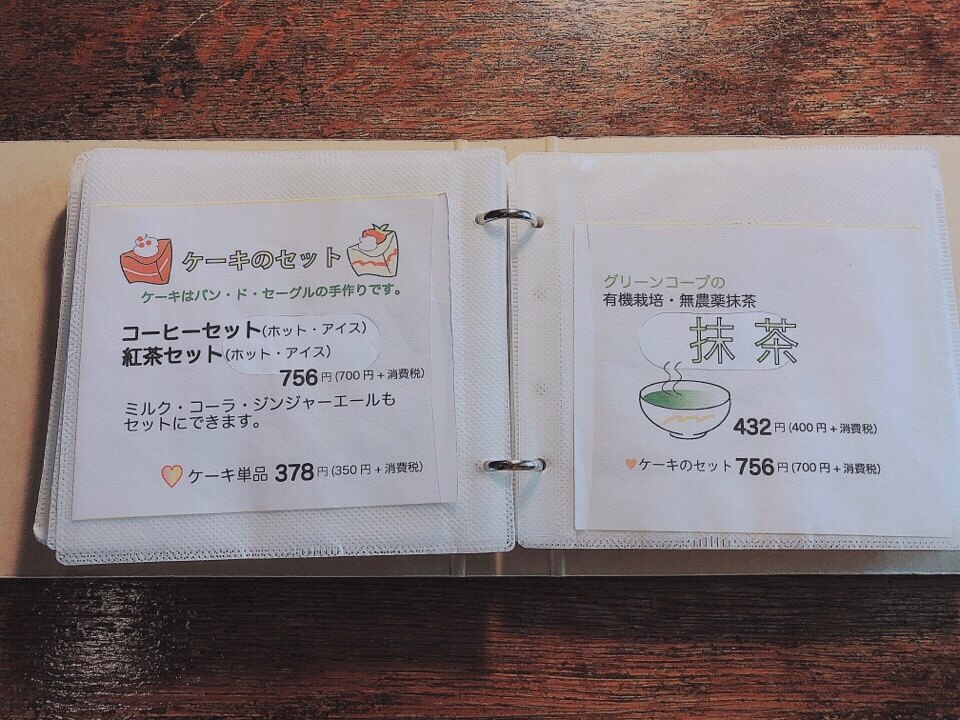 ケーキのセット
ケーキはパン・ド・セーグルの手作りです。
コーヒーセット(ホット・アイス)
紅茶セット(ホット・アイス)
756円(700円+消費税)
ミルク・コーラ・ジンジャーエールも
セットにできます。
ケーキ単品 378円(350円+消費税)
グリーンコープの
有機栽培・無農薬抹茶
抹茶
432円(400円+消費税)
ケーキのセット756円(700円+消費税)